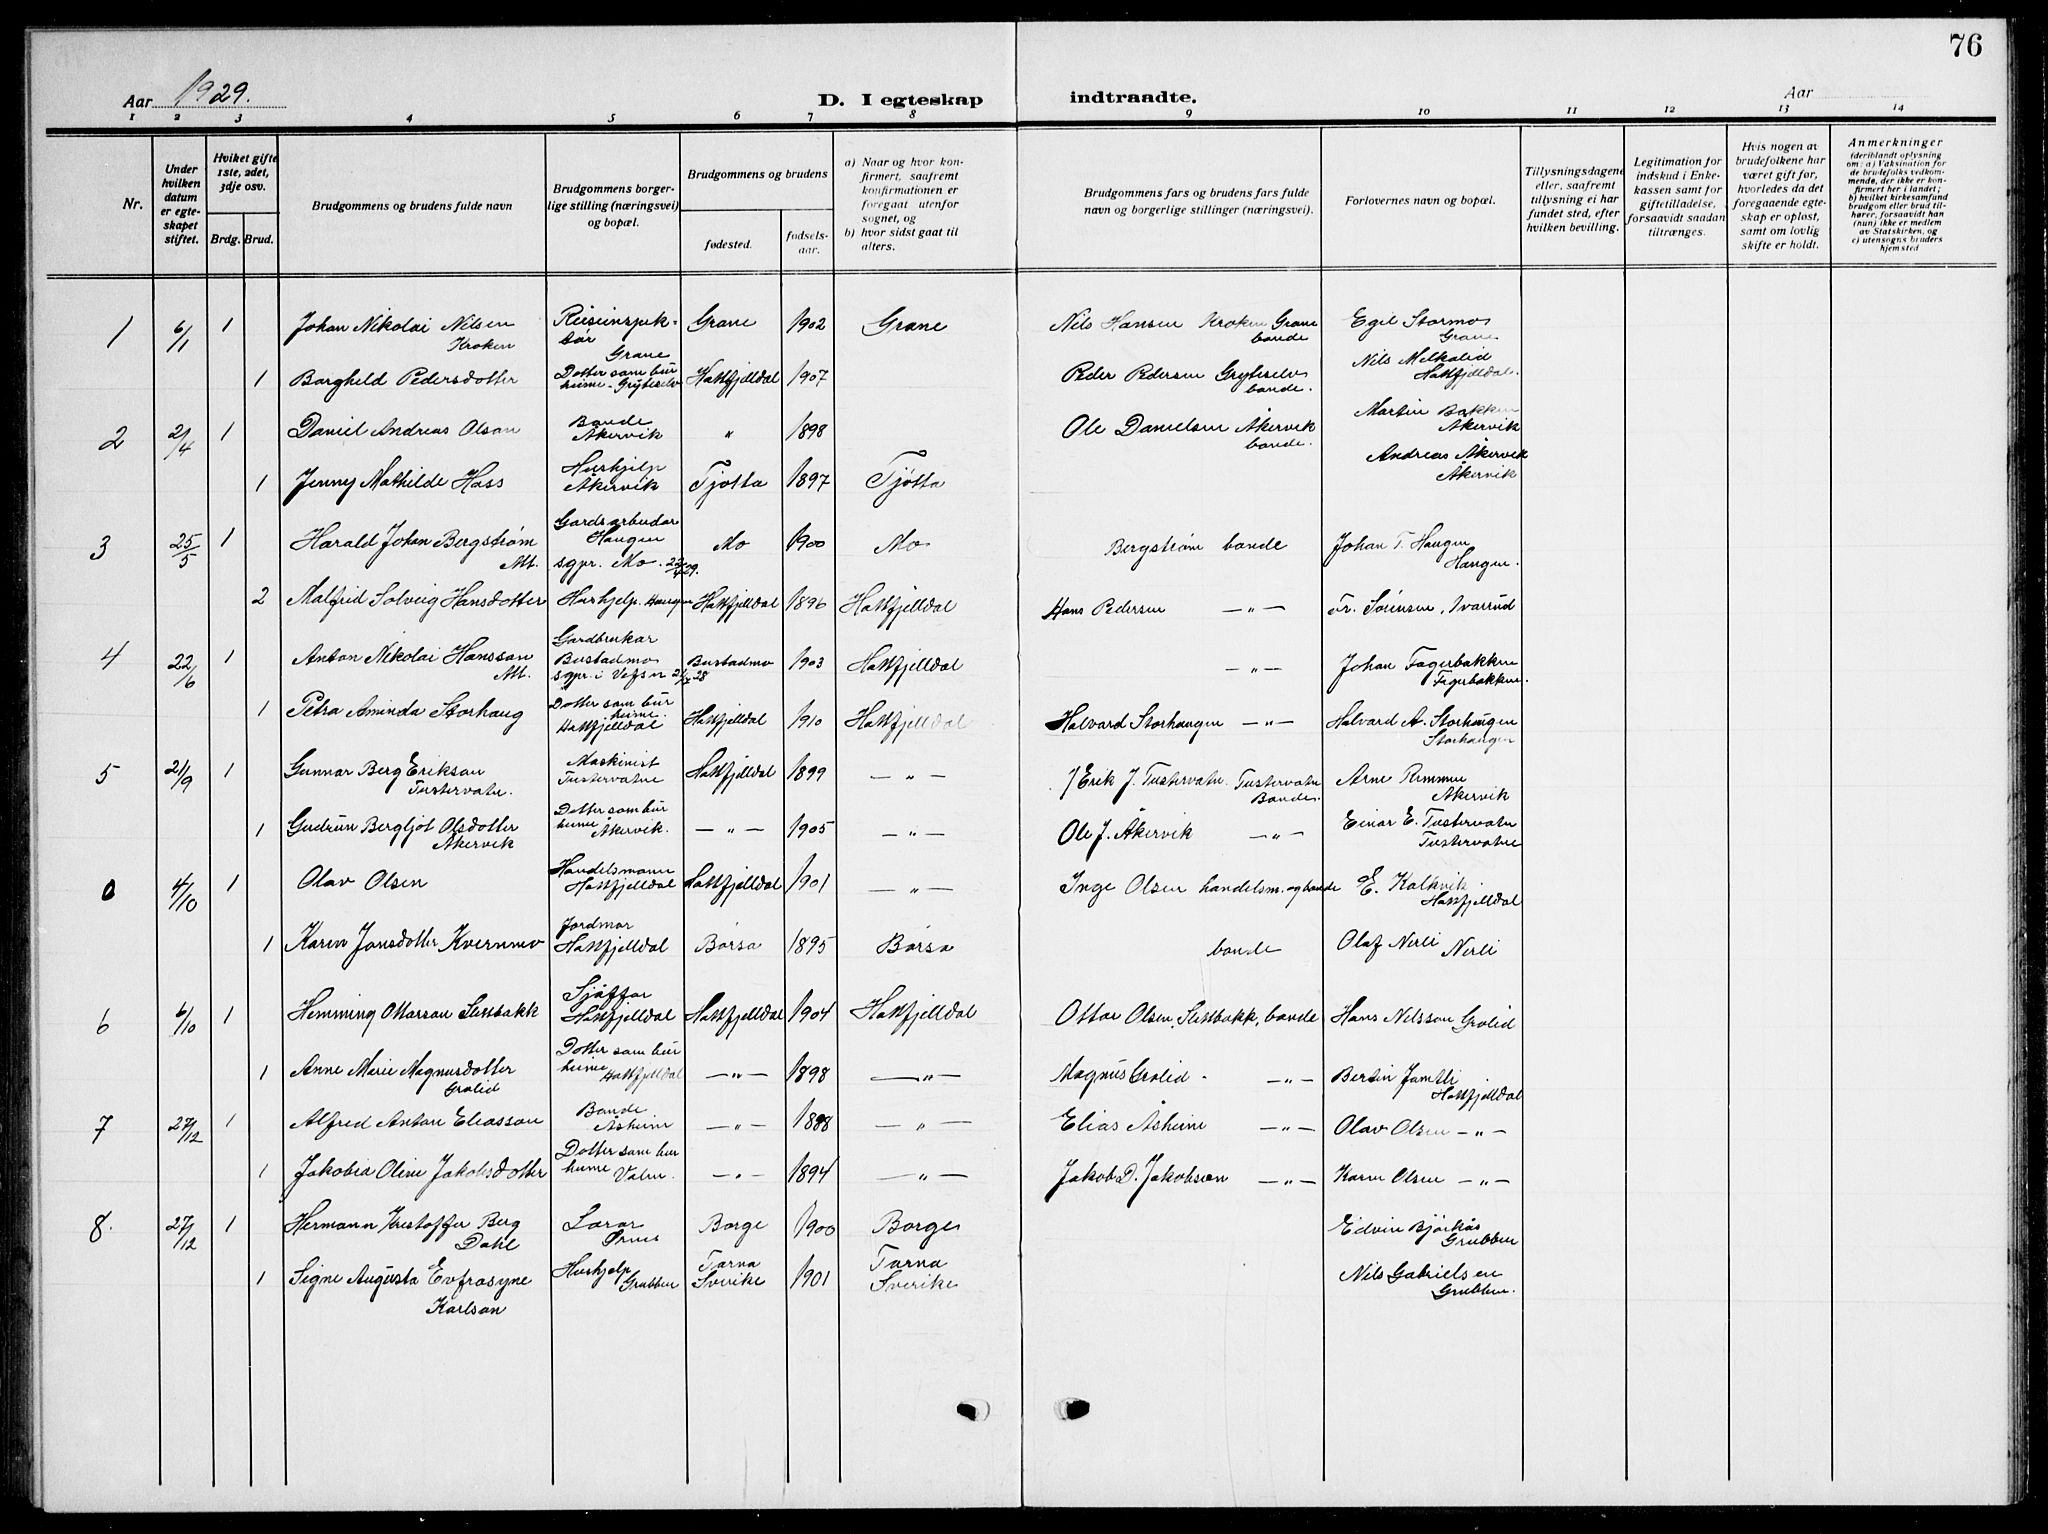 76
Aar 1929.
D. I egteskap
indtraadte.
Aar
1 2 3 4 5 6 7 8 9 10 11 12 13 14
Nr.
Under hvilken datum er egteskapet stiftet.
Hviket gifte 1ste, 2det, 3dje osv.
Brdg. Brud.
Brudgommens og brudens fulde navn
Brudgommens borgerlige stilling (næringsvei) og bopæl.
Brudgommens og brudens
fødested.
fødselsaar.
a) Naar og hvor konfirmert, saafremt konfirmationen er foregaat utenfor sognet, og
b) hvor sidst gaat til alters.
Brudgommens fars og brudens fars fulde navn og borgerlige stillinger (næringsvei).
Forlovernes navn og bopæl.
Tillysningsdagene eller, saafremt tillysning ei har fundet sted, efter hvilken bevilling.
Legitimation for indskud i Enkekassen samt for giftetilladelse, forsaavidt saadan tiltrænges.
Hvis nogen av brudefolkene har været gift før, hvorledes da det foregaaende egteskap er opløst, samt om lovlig skifte er holdt.
Anmerkninger
(deriblandt oplysning om: a) Vaksination for de brudefolks vedkommende, der ikke er konfirmert her i landet; b) hvilket kirkesamfund brudgom eller brud tilhører, forsaavidt han (hun) ikke er medlem av Statskirken, og c) utensogns bruders hjemsted
1 6/1 1 Johan Nikolai Nilsen Kroken Reiseinspektør Grane Grane 1902 Grane Nils Hansen Kroken Grane bonde Egil Stormo Grane
1 Borghild Pedersdotter Dotter som bur heime - Gryteselv Hattfjelldal 1907 Peder Pedersen Gryteselv bonde. Nils Melkolid Hattfjelldal.
2 2/4 1 Daniel Andreas Olson Bonde Åkervik „ 1898 Ole Danielsen Åkervik bonde. Martin Bakken Åkervik
1 Jenny Mathilde Hass Hushjelp Åkervik Tjøtta 1897 Tjøtta Andreas Åkervik Åkervik
3 25/5 1 Harald Johan Bergstrøm Att. Gardsarbeidar Haugen sgpr. Mo. 22/4 29. Mo 1900 Mo Bergstrøm bonde Johan T. Haugen Haugen.
2 Malfrid Solveig Hansdotter Hushjelp. Haugen Hattfjelldal 1896 Hattfjelldal Hans Pedersen — „ — Fr. Sørensen, Ivarrud
4 22/6 1 Anton Nikolai Hansson Att. Gardbrukar Bustadmo sgpr. i Vefsn 2/7 28 Bustadmo 1903 Hattfjelldal — „ — Johan Fagerbakken Fagerbakken.
1 Petra Aminda Storhaug Dotter som bur heime. Hattfjelldal Hattfjelldal 1910 Hattfjelldal Halvard Storhaugen — „ — Halvard A. Storhaugen Storhaugen
5 21/9 1 Gunnar Berg Erikson Tustervatn. Maskinist Tustervatne Hattfjelldal 1899 — „ — Erik J. Tustervatn. Tustervatn Bonde. Arne Remmen Åkervik
1 Gudrun Bergljot Olsdotter Åkervik Dotter som bur heime Åkervik. — „ — 1905 — „ — Ole J. Åkervik — „ — Einar E. Tustervatn Tustervatne
0 4/10 1 Olav Olsen Handelsmann Hattfjelldal Hattfjelldal 1901 — „ — Inge Olsen handelsm. og bonde E. Kalkvik Hattfjelldal
1 Karen Jonsdotter Kvernmo Jordmor Hattfjelldal Børsa 1895 Børsa bonde Olaf Nerli Nerli
6 6/10 1 Hemming Ottarson Slettbakk Sjåffør Hattfjelldal Hattfjelldal 1904 Hattfjelldal Ottar Olsen, Slettbakk, bonde Hans Nilsson Grølid
1 Anne Marie Magnusdotter Grølid Dotter som bur heime Hattfjelldal — „ — 1898 — „ — Magnus Grølid — „ — Bertin Jamtli Hattfjelldal
7 27/12 1 Alfred Anton Eliasson Bonde Åsheim — „ — 1888 — „ — Elias Åsheim — „ — Olav Olsen — „ —
1 Jakobia Oline Jakobsdotter Dotter som bur heime Valen. — „ — 1894 — „ — Jakob D. Jakobsen — „ — Karen Olsen — „ —
8. 27/12 1 Hermann Kristoffer Berg Dahl Lærar Ørnes Borge 1900 Borge Edvin Bjørkås Grubben
1 Signe Augusta Evfrosyne Karlson Hushjelp Grubben Tärna Sverike 1901 Tärna Sverike Nils Gabrielsen Grubben.